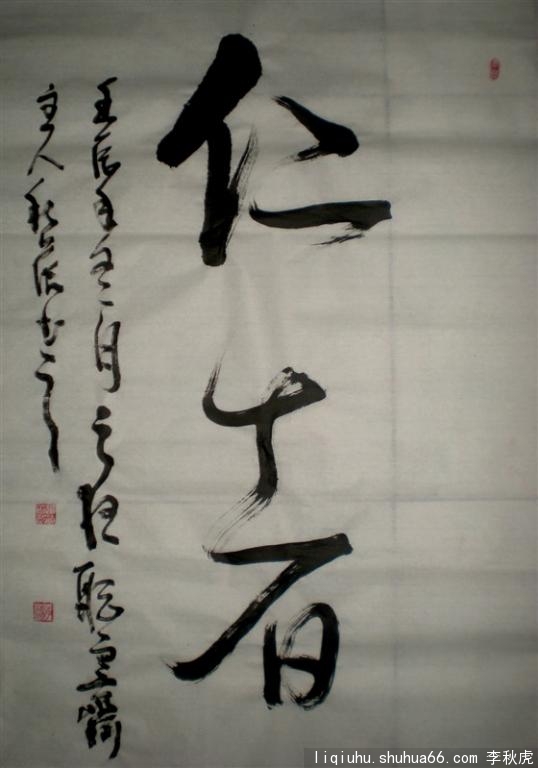 仁者
壬辰年月之聽齋
主人秋虎书之
liqiuhu.shuhua66.com 李秋虎